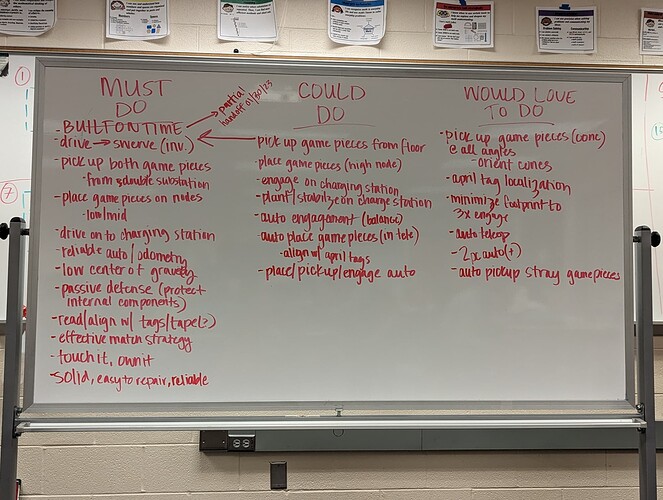 MUST
DO
- BUILT ON TIME
partial
handoff 01/30/23
- drive → swerve (inv.)
- pick up both game pieces
- from double substation
- place game pieces on nodes
- low/mid
- drive on to charging station
- reliable auto/odometry
- low center of gravity
- passive defense (protect
internal components)
- read/align w/ tags/tape(?)
- effective match strategy
- touch it, own it
- solid, easy to repair, reliable
COULD
DO
- pick up game pieces from floor
- place game pieces (high node)
- engage on charging station
- plant/stabilize on charge station
- auto engagement (balance)
- auto place game pieces (in tele)
- align w/ april tags
- place/pickup/engage auto
WOULD LOVE
TO DO
- pick up game pieces (cone)
@ all angles
- orient cones
- april tag localization
- minimize footprint to
3x engage
- auto teleop
- 2pc auto (+)
- auto pickup stray game pieces
1
7